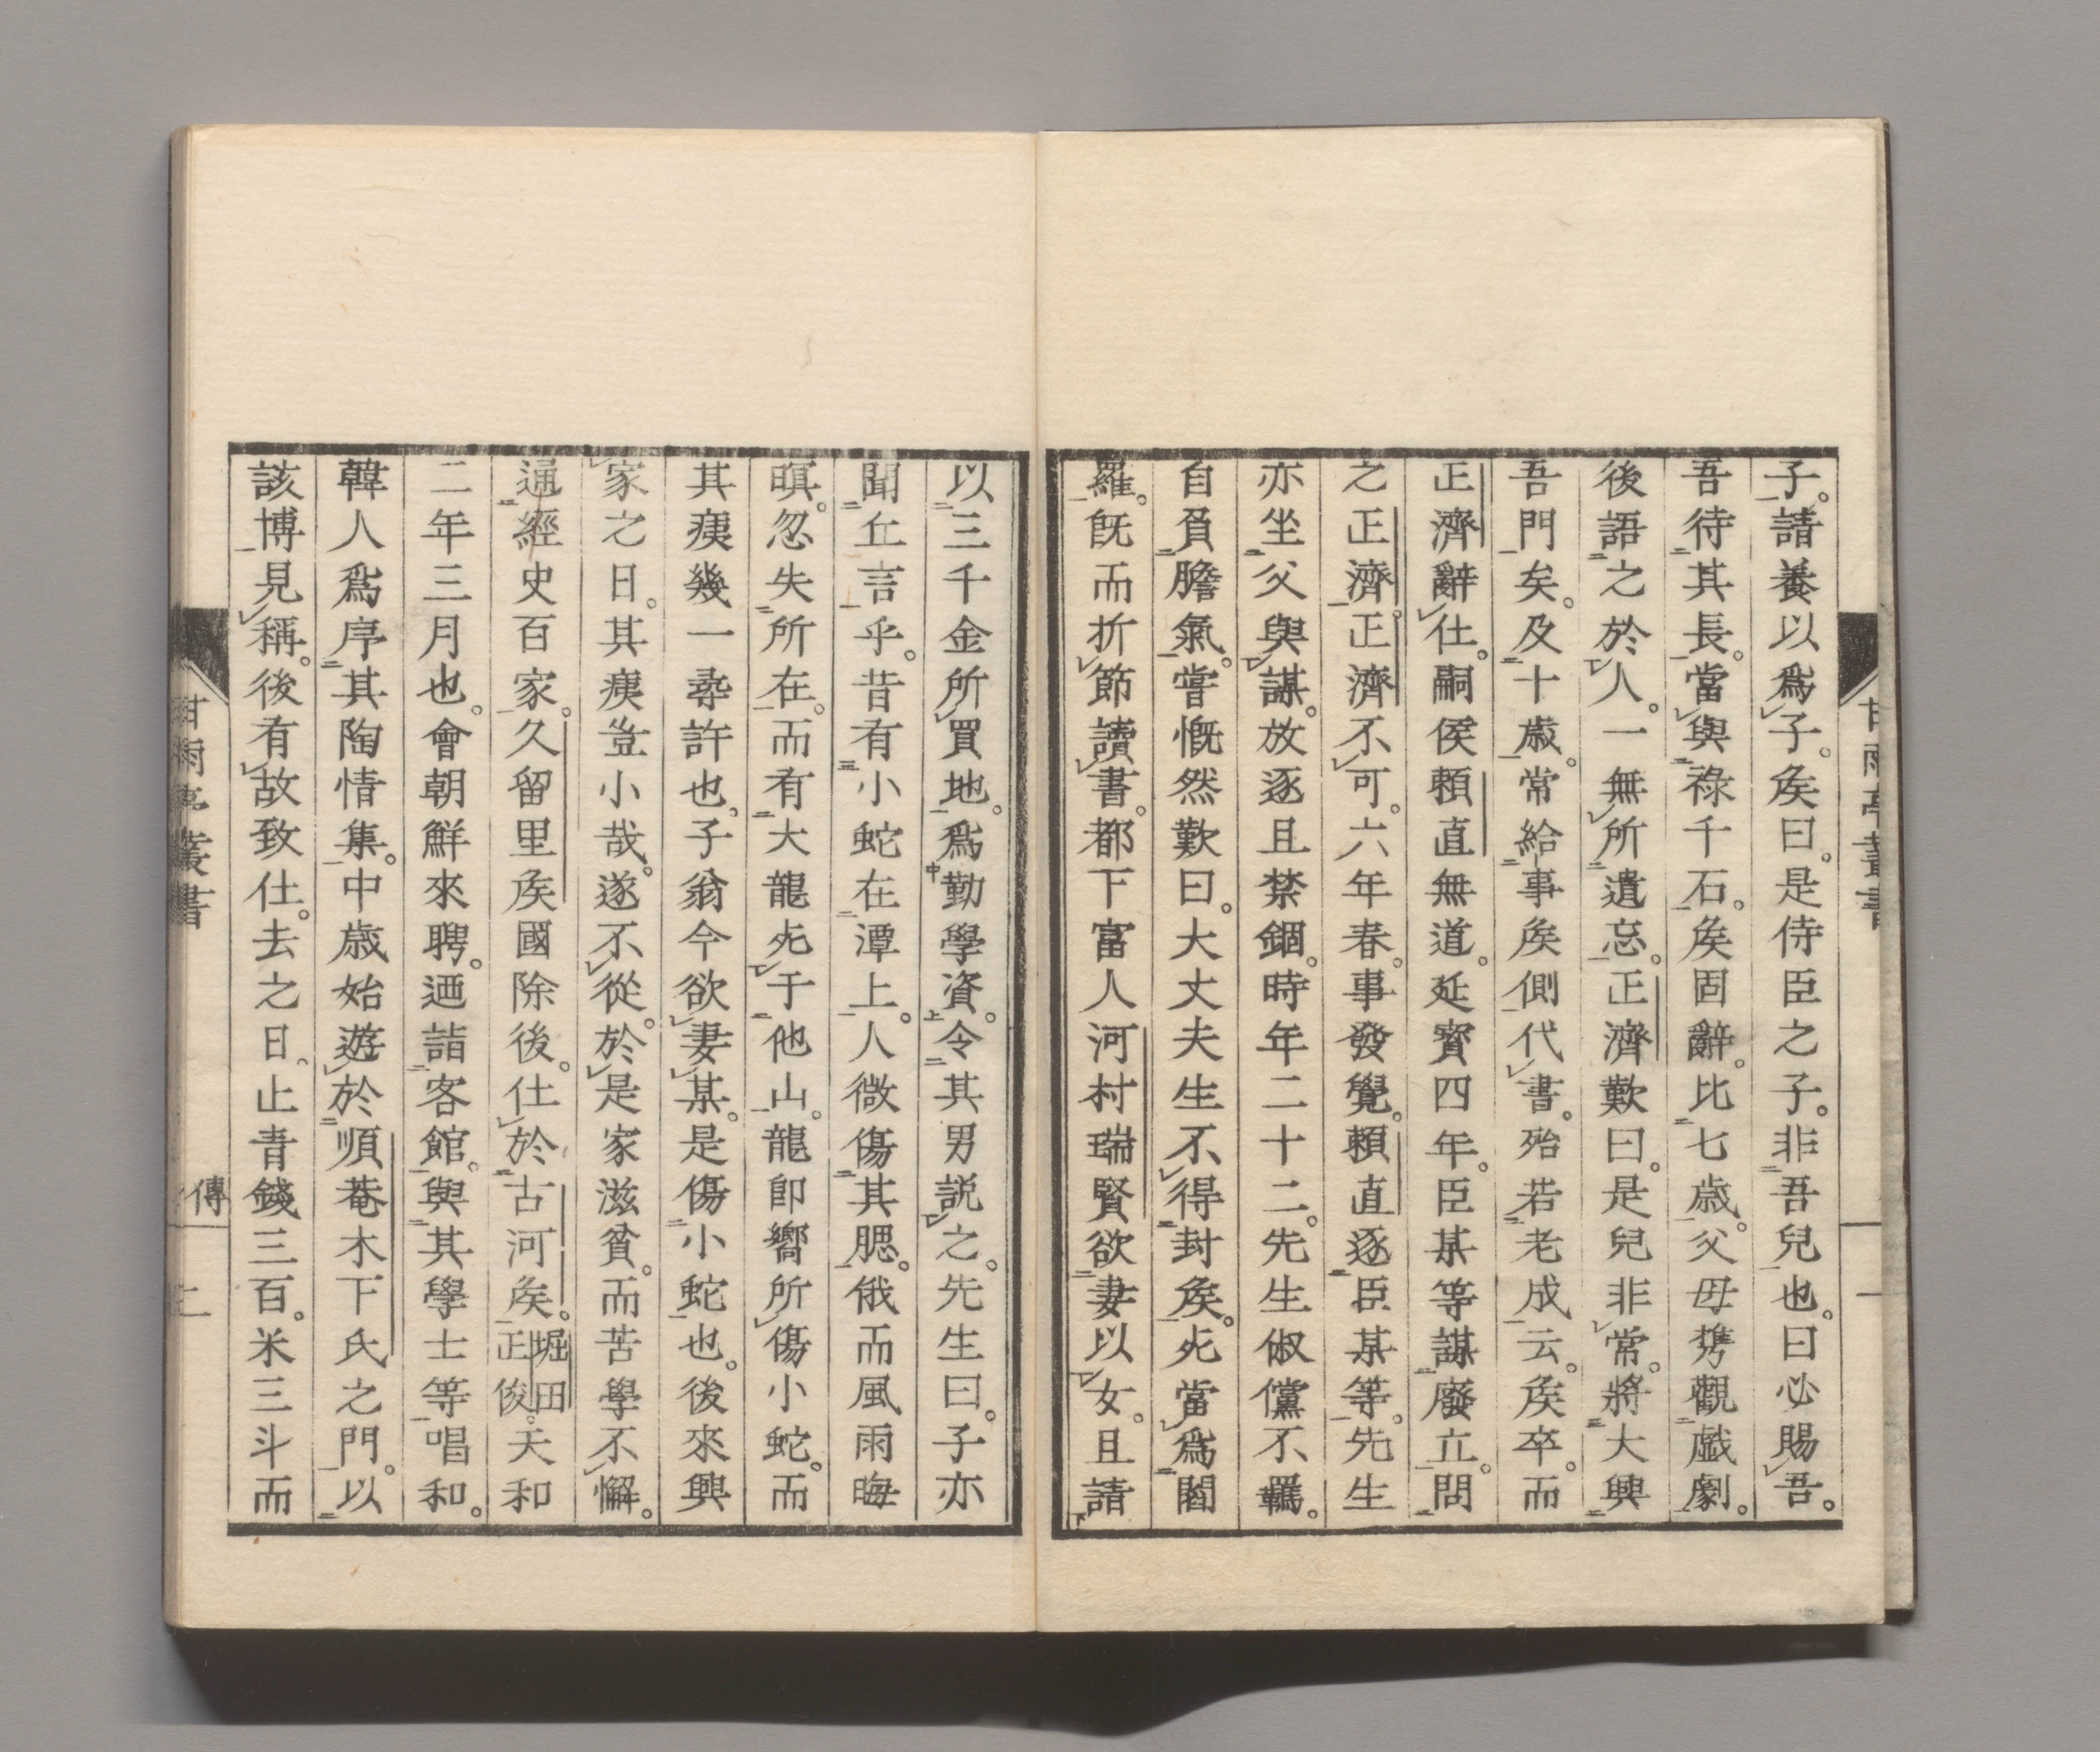 子。請養以爲子。矦曰。是侍臣之子。非吾兒也。曰必賜吾。
吾待其長。當與祿千石。矦固辭。比七歲。父母携觀戲劇。
後語之於人。一無所遺忘。正濟歎曰。是兒非常。將大興
吾門矣。及十歲。常給事矦側代書。殆若老成云。矦卒。而
正濟辭仕。嗣侯賴直無道。延寳四年。臣某等謀廢立。問
之正濟。正濟不可。六年春。事發覺。賴直逐臣某等。先生
亦坐父與謀。放逐且禁錮。時年二十二。先生俶儻不羈。
自負膽氣。嘗慨然歎曰。大丈夫生不得封矦。死當爲閻
羅。既而折節讀書。都下富人河村瑞賢欲妻以女。且請
以三千金所買地。爲勤學資。令其男説之。先生曰。子亦
聞丘言乎。昔有小蛇在潭上。人微傷其腮。俄而風雨晦
暝。忽失所在。而有大龍死于他山。龍卽嚮所傷小蛇。而
其痍幾一尋許也。子翁今欲妻某。是傷小蛇也。後來興
家之日。其痍豈小哉。遂不從。於是家滋貧。而苦學不懈。
通經史百家。久留里矦國除後。仕於古河矦。堀田正俊。天和
二年三月也。會朝鮮來聘。迺詣客館。與其學士等唱和。
韓人爲序其陶情集。中歲始遊於順菴木下氏之門。以
該博見稱。後有故致仕。去之日。止青錢三百。米三斗而
甘雨亭叢書
一
甘雨亭叢書
傳
二